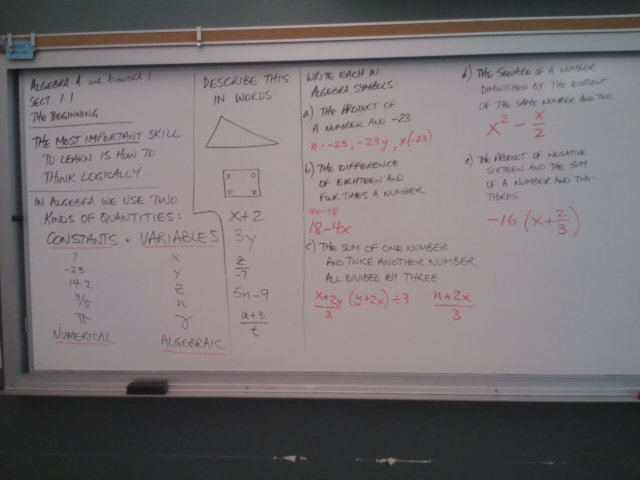 ALGEBRA A and ALGEBRA 1
SECT. 1.1
THE BEGINNING
THE MOST IMPORTANT SKILL
TO LEARN IS HOW TO
THINK LOGICALLY.
IN ALGEBRA WE USE TWO
KINDS OF QUANTITIES:
CONSTANTS + VARIABLES
7 x
-23 y
14.2 z
3/5 n
π γ
NUMERICAL ALGEBRAIC
DESCRIBE THIS
IN WORDS:
x o
o x
x+2
3y
z/-7
5n-9
a+3/t
WRITE EACH IN
ALGEBRA SYMBOLS:
a) THE PRODUCT OF
A NUMBER AND -23
x·-23, -23y, x(-23)
b) THE DIFFERENCE
OF EIGHTEEN AND
FOUR TIMES A NUMBER
18-4x
c) THE SUM OF ONE NUMBER
AND TWICE ANOTHER NUMBER
ALL DIVIDED BY THREE
x+2y/3 (y+2x)÷3 n+2x/3
d) THE SQUARE OF A NUMBER
DIMINISHED BY THE QUOTIENT
OF THE SAME NUMBER AND TWO
x² - x/2
e) THE PRODUCT OF NEGATIVE
SIXTEEN AND THE SUM
OF A NUMBER AND TWO-
THIRDS
-16 (x+2/3)